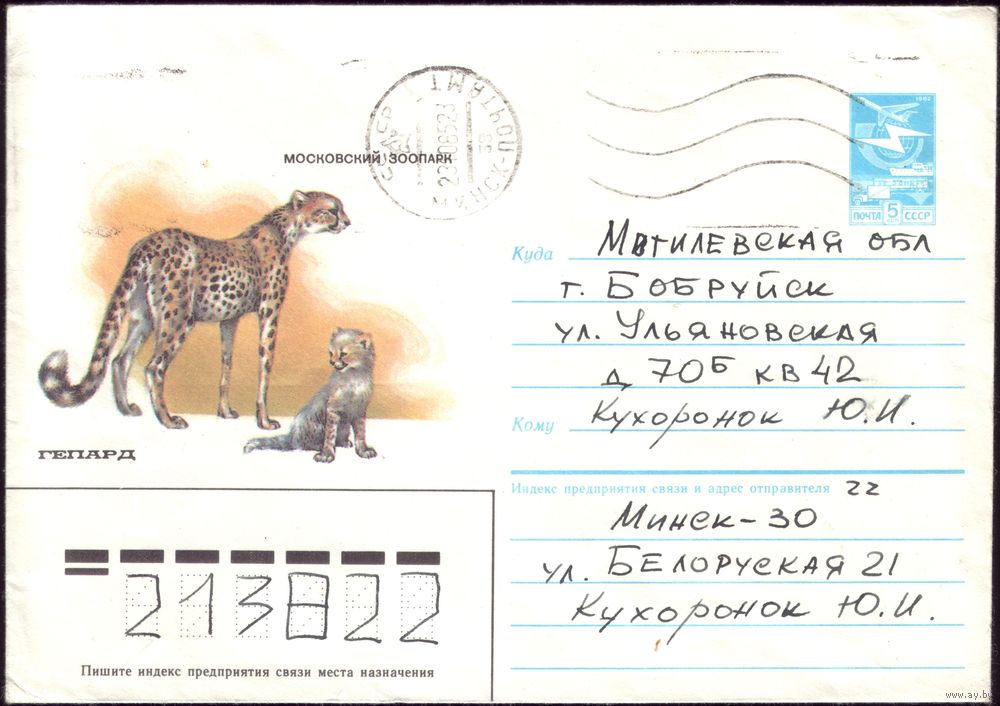 МОСКОВСКИЙ ЗООПАРК
ГЕПАРД
МИНСК-ПОЧТАМТ
1982
ПОЧТА 5 КОП СССР
Куда Могилевская обл
г. Бобруйск
ул. Ульяновская
д 70Б кв 42
Кому Кухоронок Ю.И.
Индекс предприятия связи и адрес отправителя 22
Минск-30
ул. Белоруская 21
Кухоронок Ю.И.
213822
Пишите индекс предприятия связи места назначения
www.ay.by